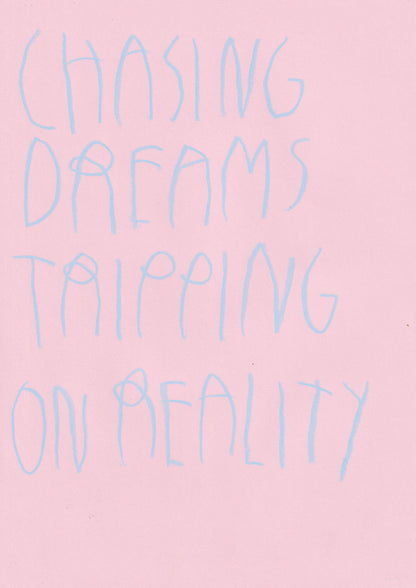 CHASING
DREAMS
TRIPPING
ON REALITY